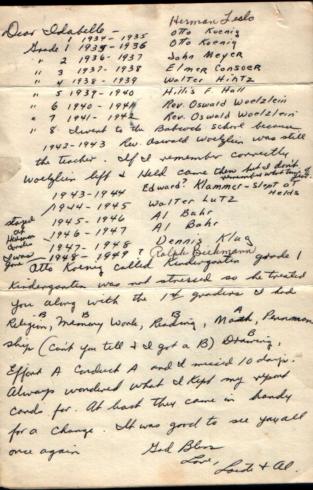 Dear Idabelle - Herman Leslo
" 1 1934 - 1935 Otto Koenig
Grade 1 1935 - 1936 Otto Koenig
" 2 1936 - 1937 John Meyer
" 3 1937 - 1938 Elmer Consoer
" 4 1938 - 1939 Walter Hintz
" 5 1939 - 1940 Hillis F. Hall
" 6 1940 - 1941 Rev. Oswald Woelzlein
" 7 1941 - 1942 Rev. Oswald Woelzlein
" 8 I went to the Babcock school because
1942 - 1943 Rev. Oswald Woelzlein was still
the teacher. If I remember correctly
Woelzlein left & Held came then but I don't remember what time of
1943 - 1944 Edward? Klammer - Slept at Helds
1944 - 1945 Walter Lutz
stayed 1945 - 1946 Al Bahr
at Herman 1946 - 1947 Al Bahr
1947 - 1948 Dennis Klug
I was gone 1948 - 1949 ? Ralph Biekmann
Otto Koenig called Kindergarten grade 1
Kindergarten was not stressed so he treated
you along with the 1st graders I had
B B B A
Religion, Memory Work, Reading, Math, Penman
B
ship (Can't you tell & I got a B) Drawing,
Effort A Conduct A and I missed 10 days.
Always wondered what I kept my report
cards for. At last they came in handy
for a change. It was good to see you all
once again
God Bless
Love,
& Al.